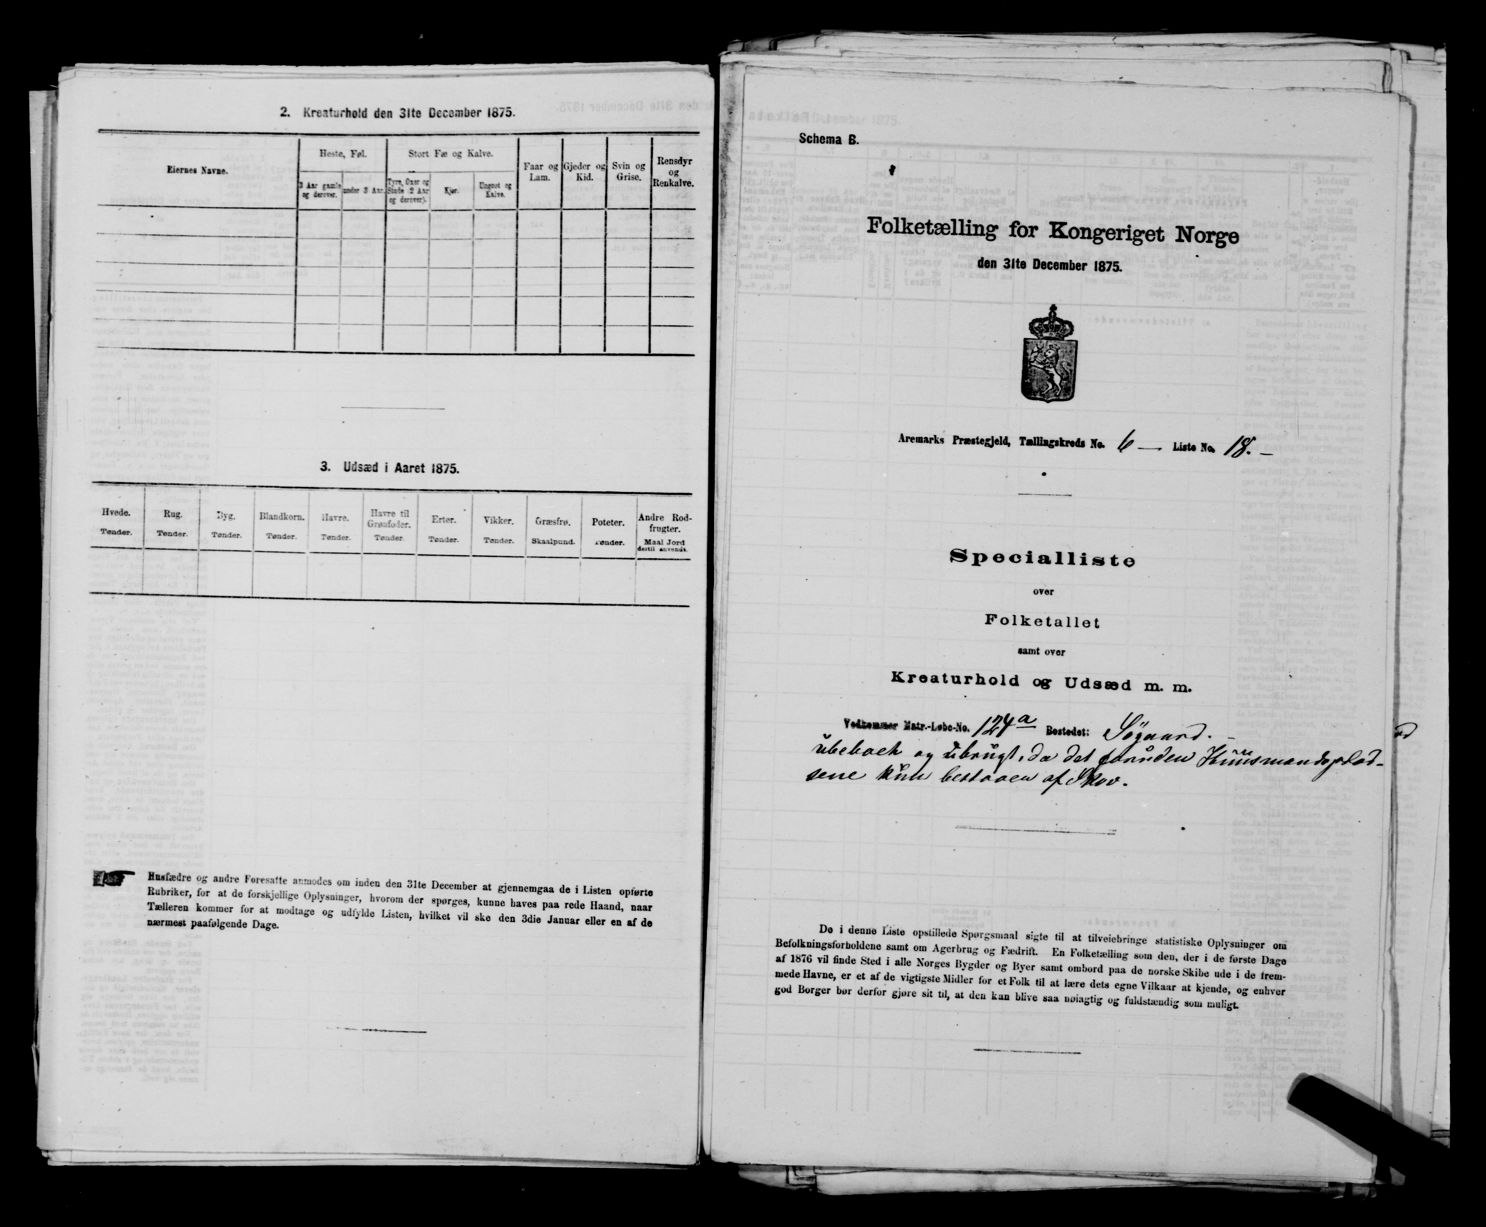 2. Kreaturhold den 31te December 1875.
Eiernes Navne.
Heste, Føl.
Stort Fæ og Kalve.
Faar og Lam.
Gjeder og Kid.
Svin og Grise.
Rensdyr og Renkalve.
3 Aar gamle og derover.
under 3 Aar.
Tyre, Oxer og Stude (2 Aar og derover).
Kjør.
Ungnøt og Kalve.
3. Udsæd i Aaret 1875.
Hvede. Rug. Byg. Blandkorn. Havre. Havre til Grønfoder. Erter. Vikker. Græsfrø. Poteter. Andre Rodfrugter.
Tønder. Tønder. Tønder. Tønder. Tønder. Tønder. Tønder. Tønder. Skaalpund. Tønder. Maal Jord dertil anvendt.
Husfædre og andre Foresatte anmodes om inden den 31te December at gjennemgaa de i Listen opførte
Rubriker, for at de forskjellige Oplysninger, hvorom der spørges, kunne haves paa rede Haand, naar
Tælleren kommer for at modtage og udfylde Listen, hvilket vil ske den 3die Januar eller en af de
nærmest paafølgende Dage.
Schema B.
Folketælling for Kongeriget Norge
den 31te December 1875.
Aremarks Præstegjeld, Tællingskreds No. 6 — Liste No. 18. —
Specialliste
over
Folketallet
samt over
Kreaturhold og Udsæd m. m.
Vedkommer Matr.-Løbe-No. 124a Bostedet: Søgaard. —
ubeboet og ubrugt, da det foruden Huusmandsplad-
sene kun bestaaer af Skov.
De i denne Liste opstillede Spørgsmaal sigte til at tilveiebringe statistiske Oplysninger om
Befolkningsforholdene samt om Agerbrug og Fædrift. En Folketælling som den, der i de første Dage
af 1876 vil finde Sted i alle Norges Bygder og Byer samt ombord paa de norske Skibe ude i de frem-
mede Havne, er et af de vigtigste Midler for et Folk til at lære dets egne Vilkaar at kjende, og enhver
god Borger bør derfor gjøre sit til, at den kan blive saa nøiagtig og fuldstændig som muligt.